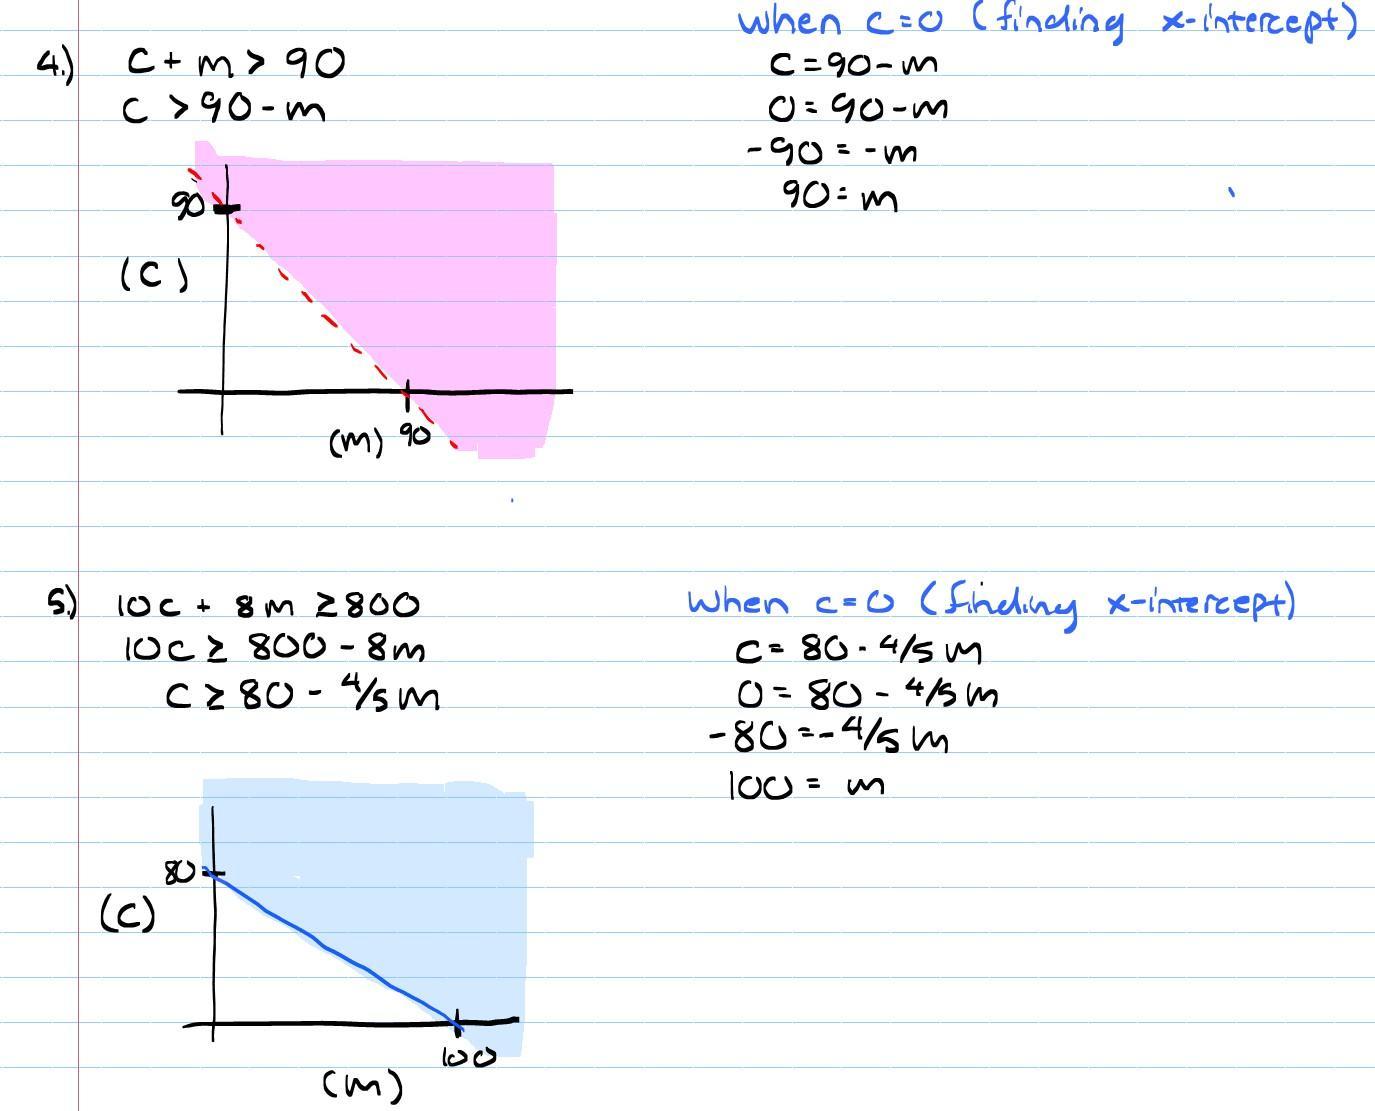 4.)
C + m > 90
C > 90 - m
when c=0 (finding x-intercept)
C = 90 - m
0 = 90 - m
-90 = -m
90 = m
90
(C)
(m) 90
5.)
10c + 8m ≥ 800
10c ≥ 800 - 8m
C ≥ 80 - 4/5 m
when c=0 (finding x-intercept)
C = 80 - 4/5 m
0 = 80 - 4/5 m
-80 = -4/5 m
100 = m
80
(C)
100
(m)